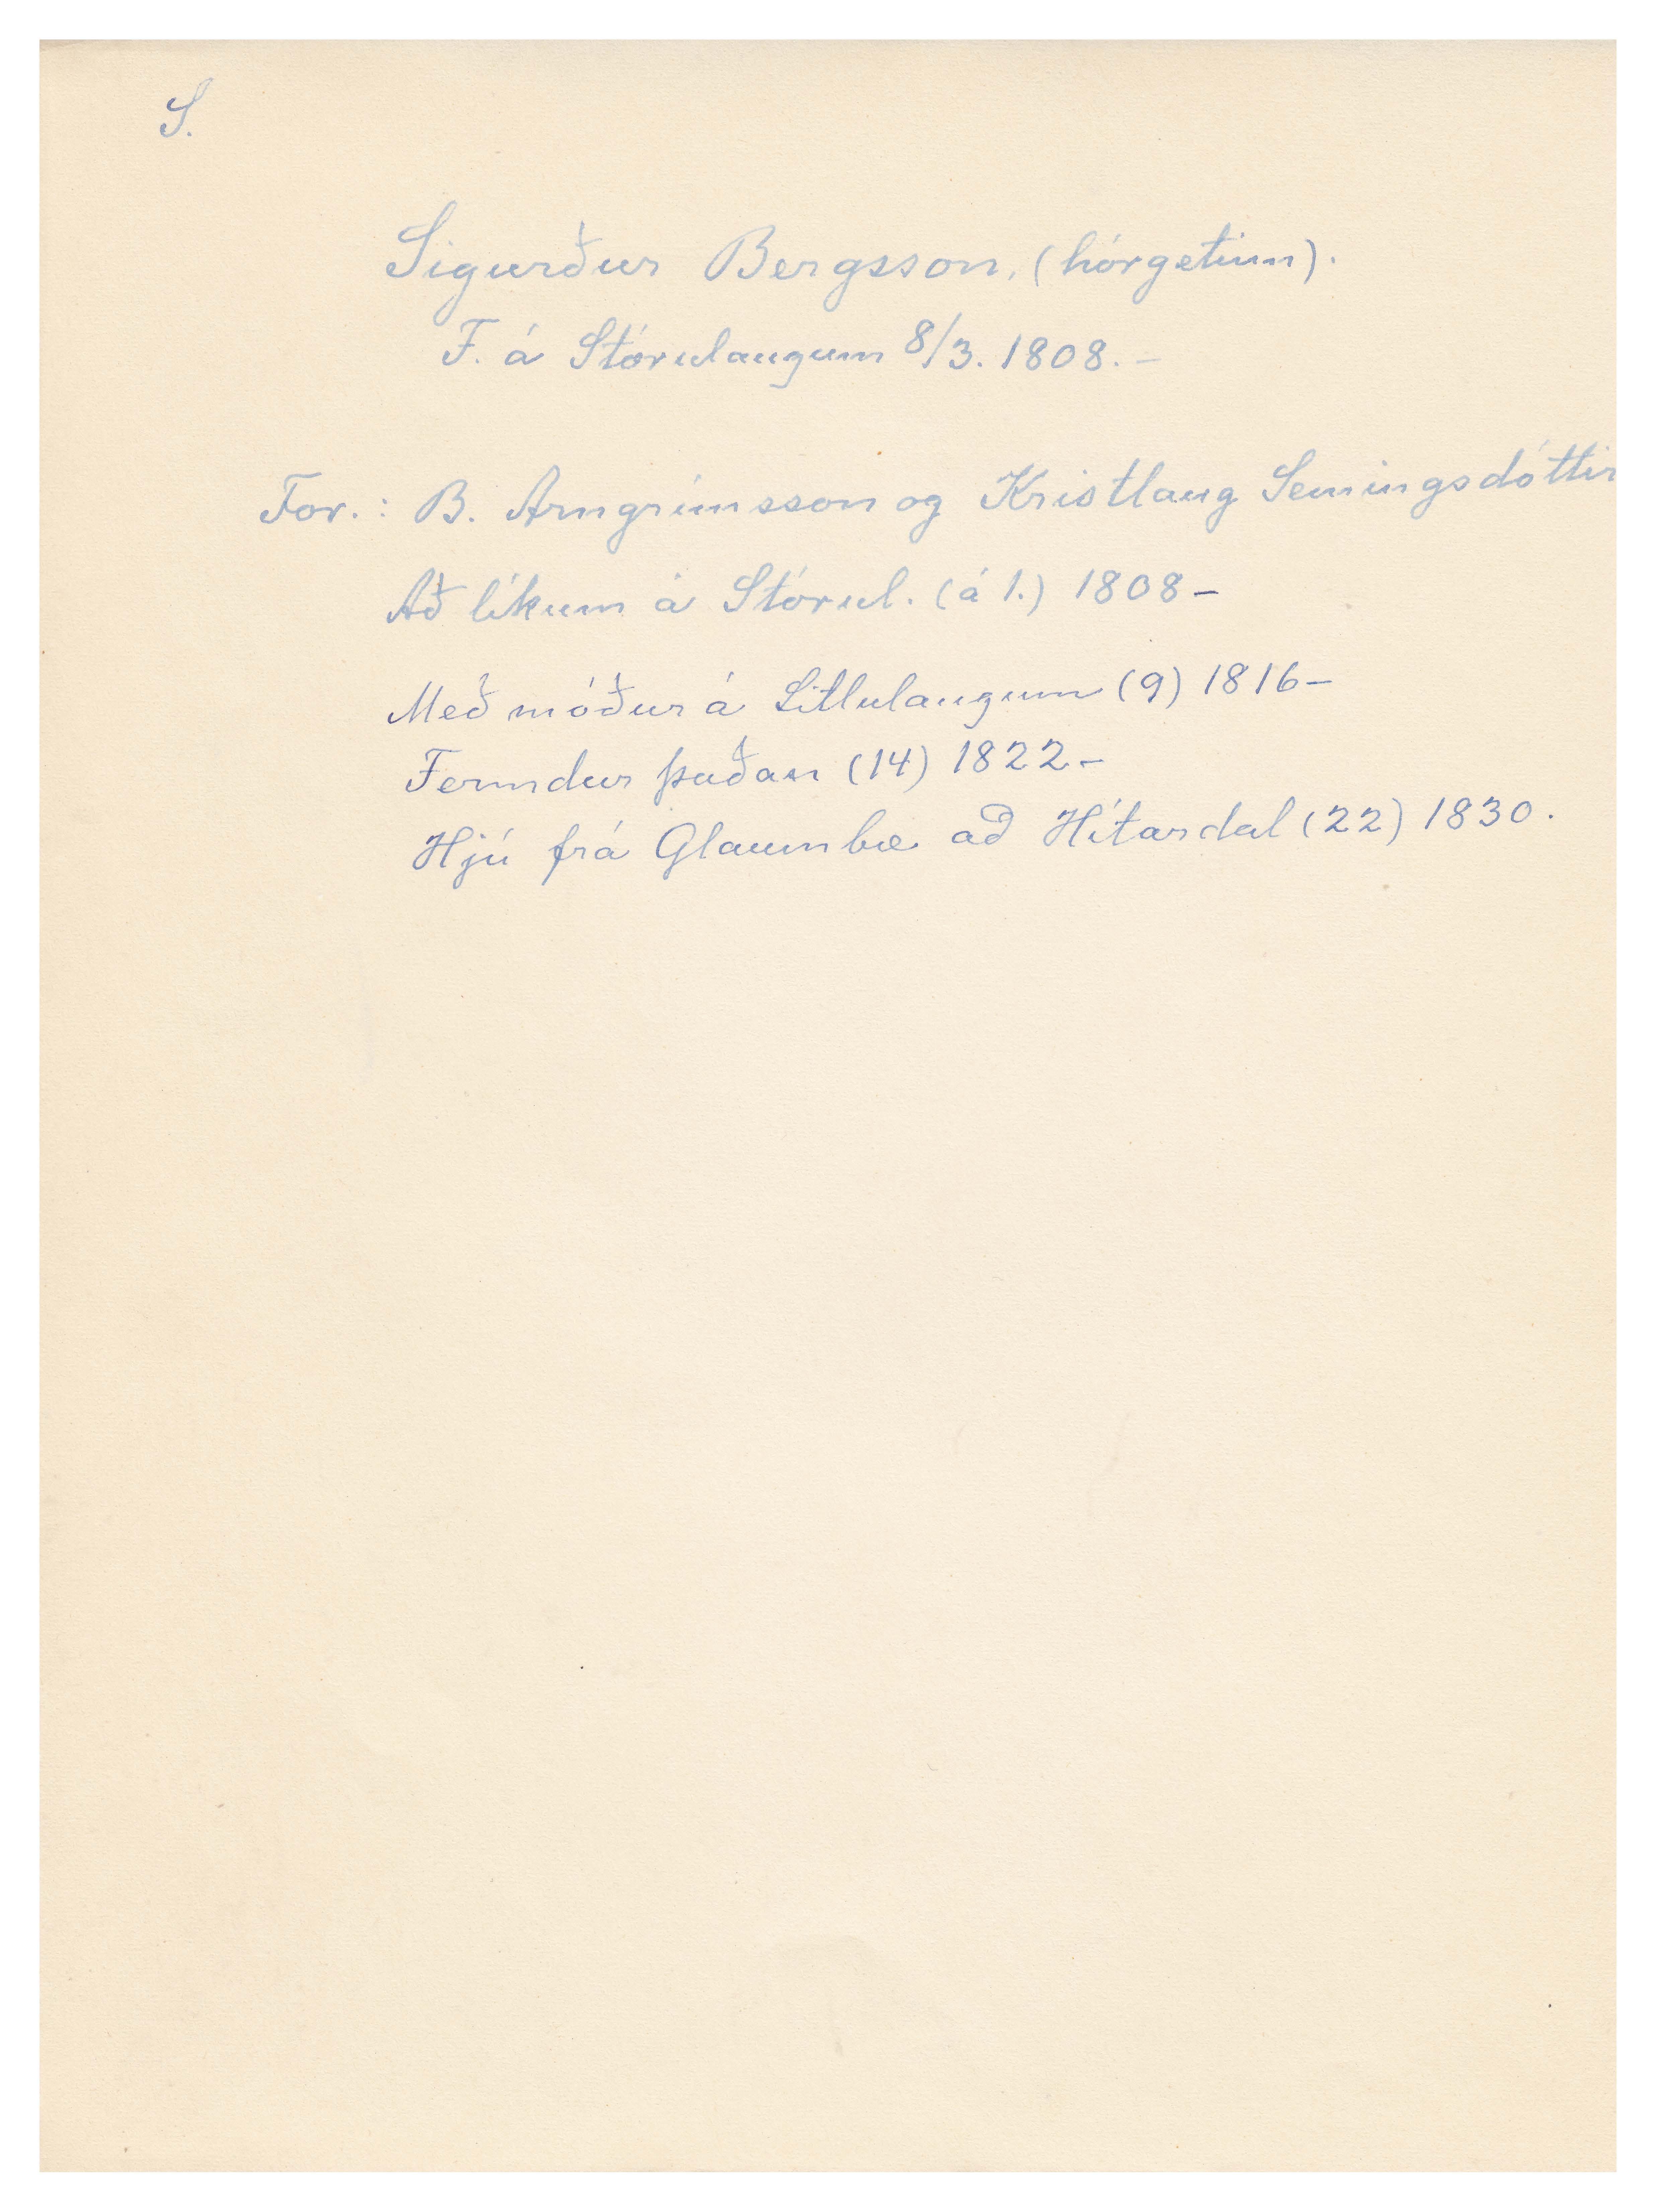 S.
Sigurður Bergsson, (hórgetinn).
F. á Stórulaugum 8/3. 1808. -
For.: B. Arngrímsson og Kristlaug Semingsdóttir
Að líkum á Stórul. (á 1.) 1808 -
Með móður á Litlulaugum (9) 1816 -
Fermdur þaðan (14) 1822 -
Hjú frá Glaumbæ að Hítardal (22) 1830.